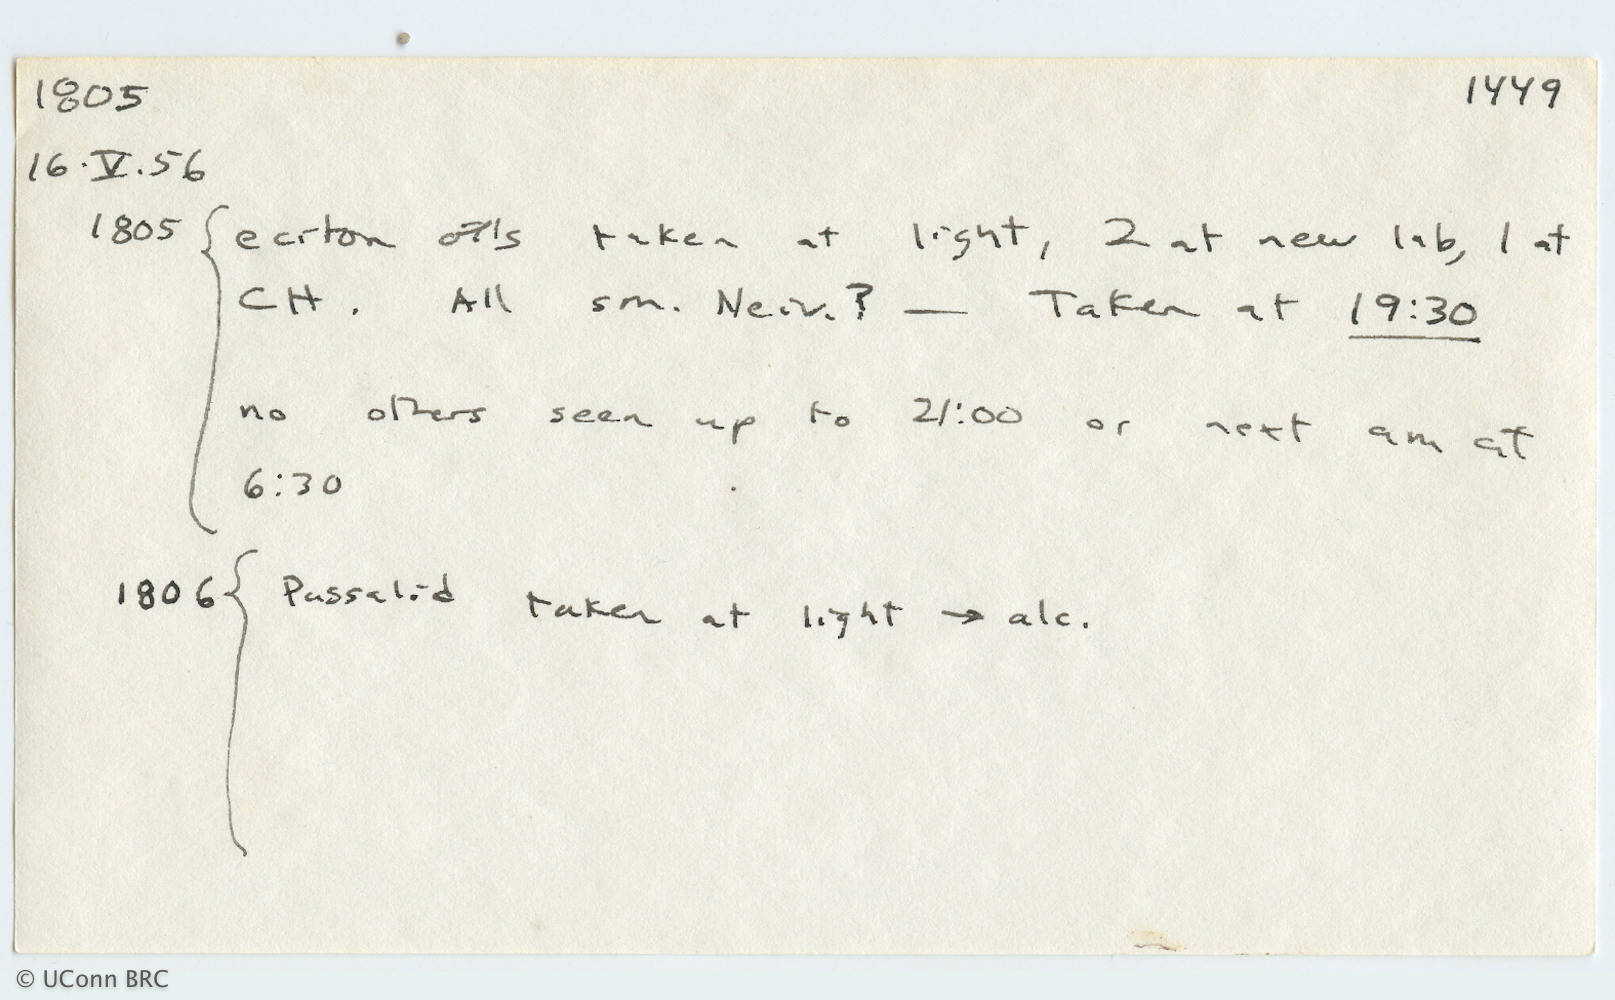 1805 1449
16.V.56
1805 { eciton ♂♂'s taken at light, 2 at new lab, 1 at
CH. All sm. Neiv.? — Taken at 19:30
no others seen up to 21:00 or next am at
6:30
1806 { Passalid taken at light → alc.
© UConn BRC